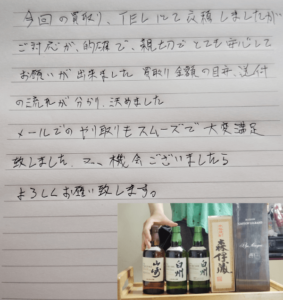 今回の買取り、TELにて交渉しましたが
ご対応が、的確で、親切でとても安心して
お願いが出来ました 買取り金額の目安、送付
の流れが分かり、決めました
メールでのやり取りもスムーズで大変満足
致しました、又、機会ございましたら
よろしくお願い致します。
山崎
白州
白州
森伊蔵